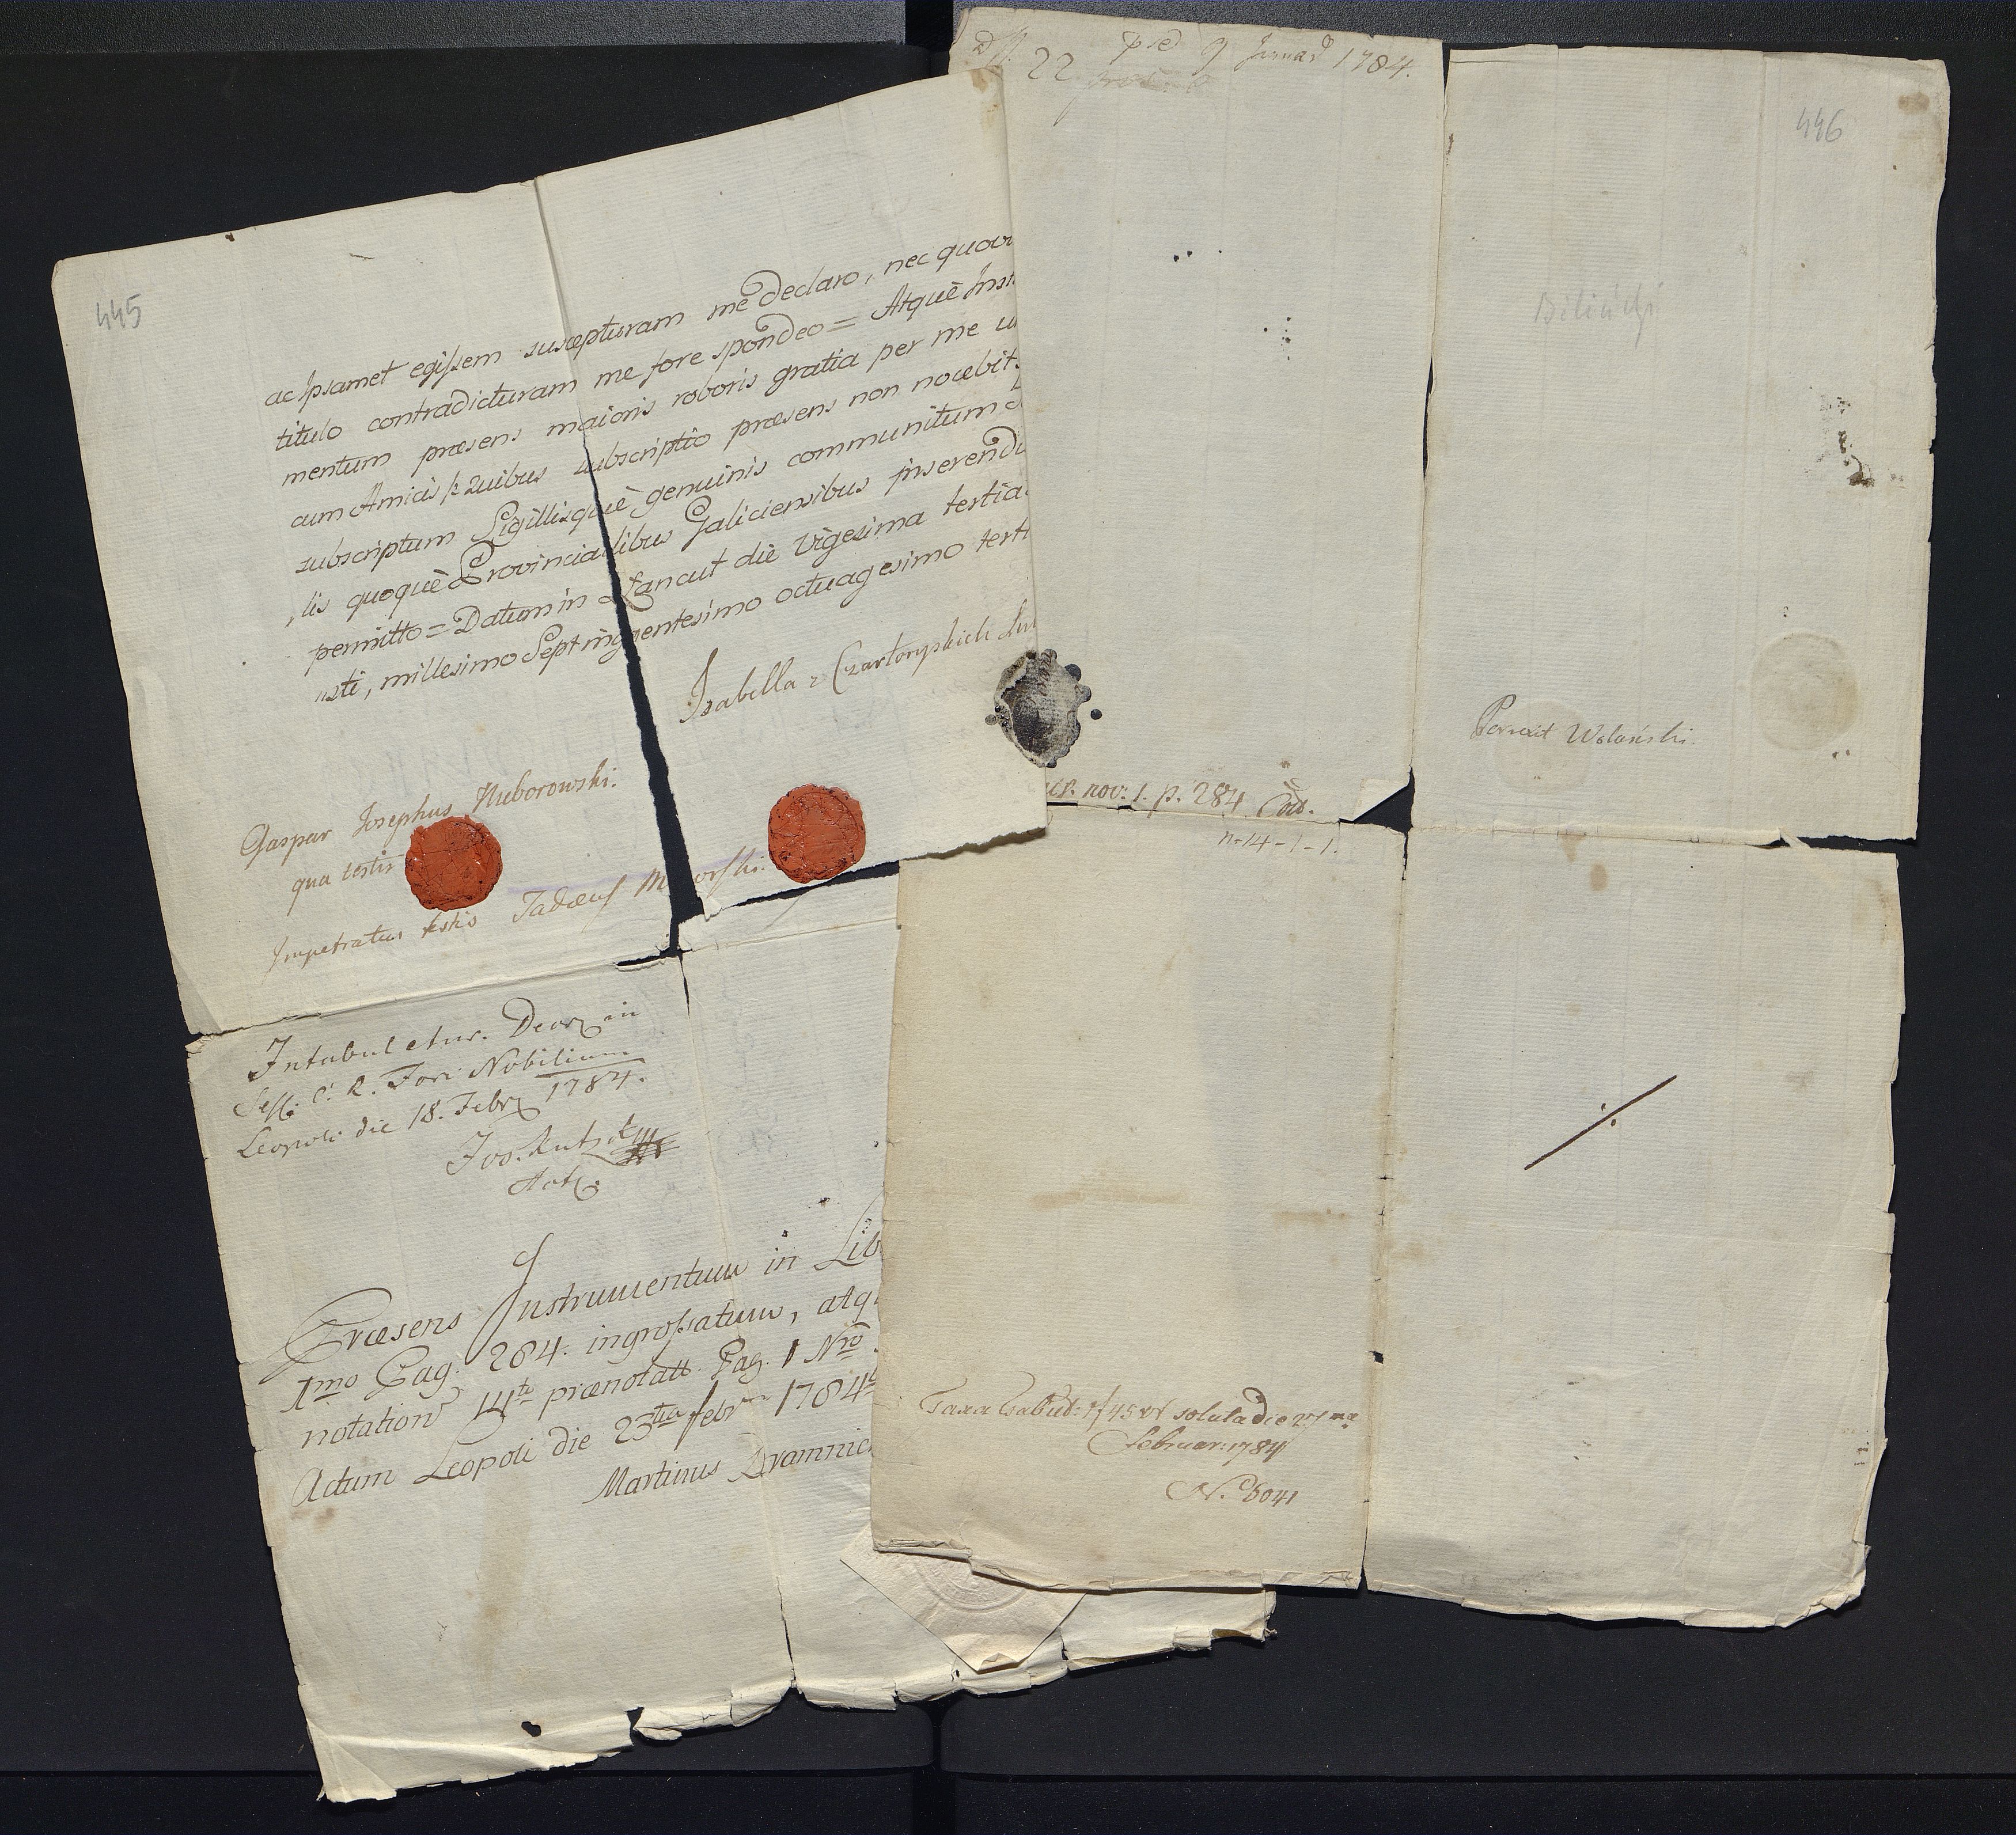 445
ac Ipsamet egissem suscepturam me declaro, nec quovi
titulo contradicturam me fore spondeo = Atquè Inst
mentum præsens maioris roboris gratia per me u
cum Amicis p quibus subscriptio præsens non nocebit
subscriptum Sigillisquè genuinis communitum
lis quoquè Provincialibus Galiciensibus inserend
permitto = Datum in Łancut die vigesima tertia
usti, millesimo Septingentesimo octuagesimo terti
Isabella z Czartoryskich Lu
Gaspar Josephus Kuborowski.
qua testis
Impetratus testis Tadæus M
Intabuletur. Decr in
Sess: C: R. Fori Nobilium
Leopoli die 18. Febr 1784.
Præsens Instrumentum in Lib
1mo Pag: 284. ingrossatum, atq
notation 14to prænotatt Pag. 1 Nro
Actum Leopoli die 23tia febr 1784
Martinus Dramnic
22 9 Januar 1784.
nov: 1. p. 284
n-14-1-1.
Taxa Tabul: 1f 45 xr soluta die 27ma
Februar: 1784
No. 6041
446
Biliński
Wolański.